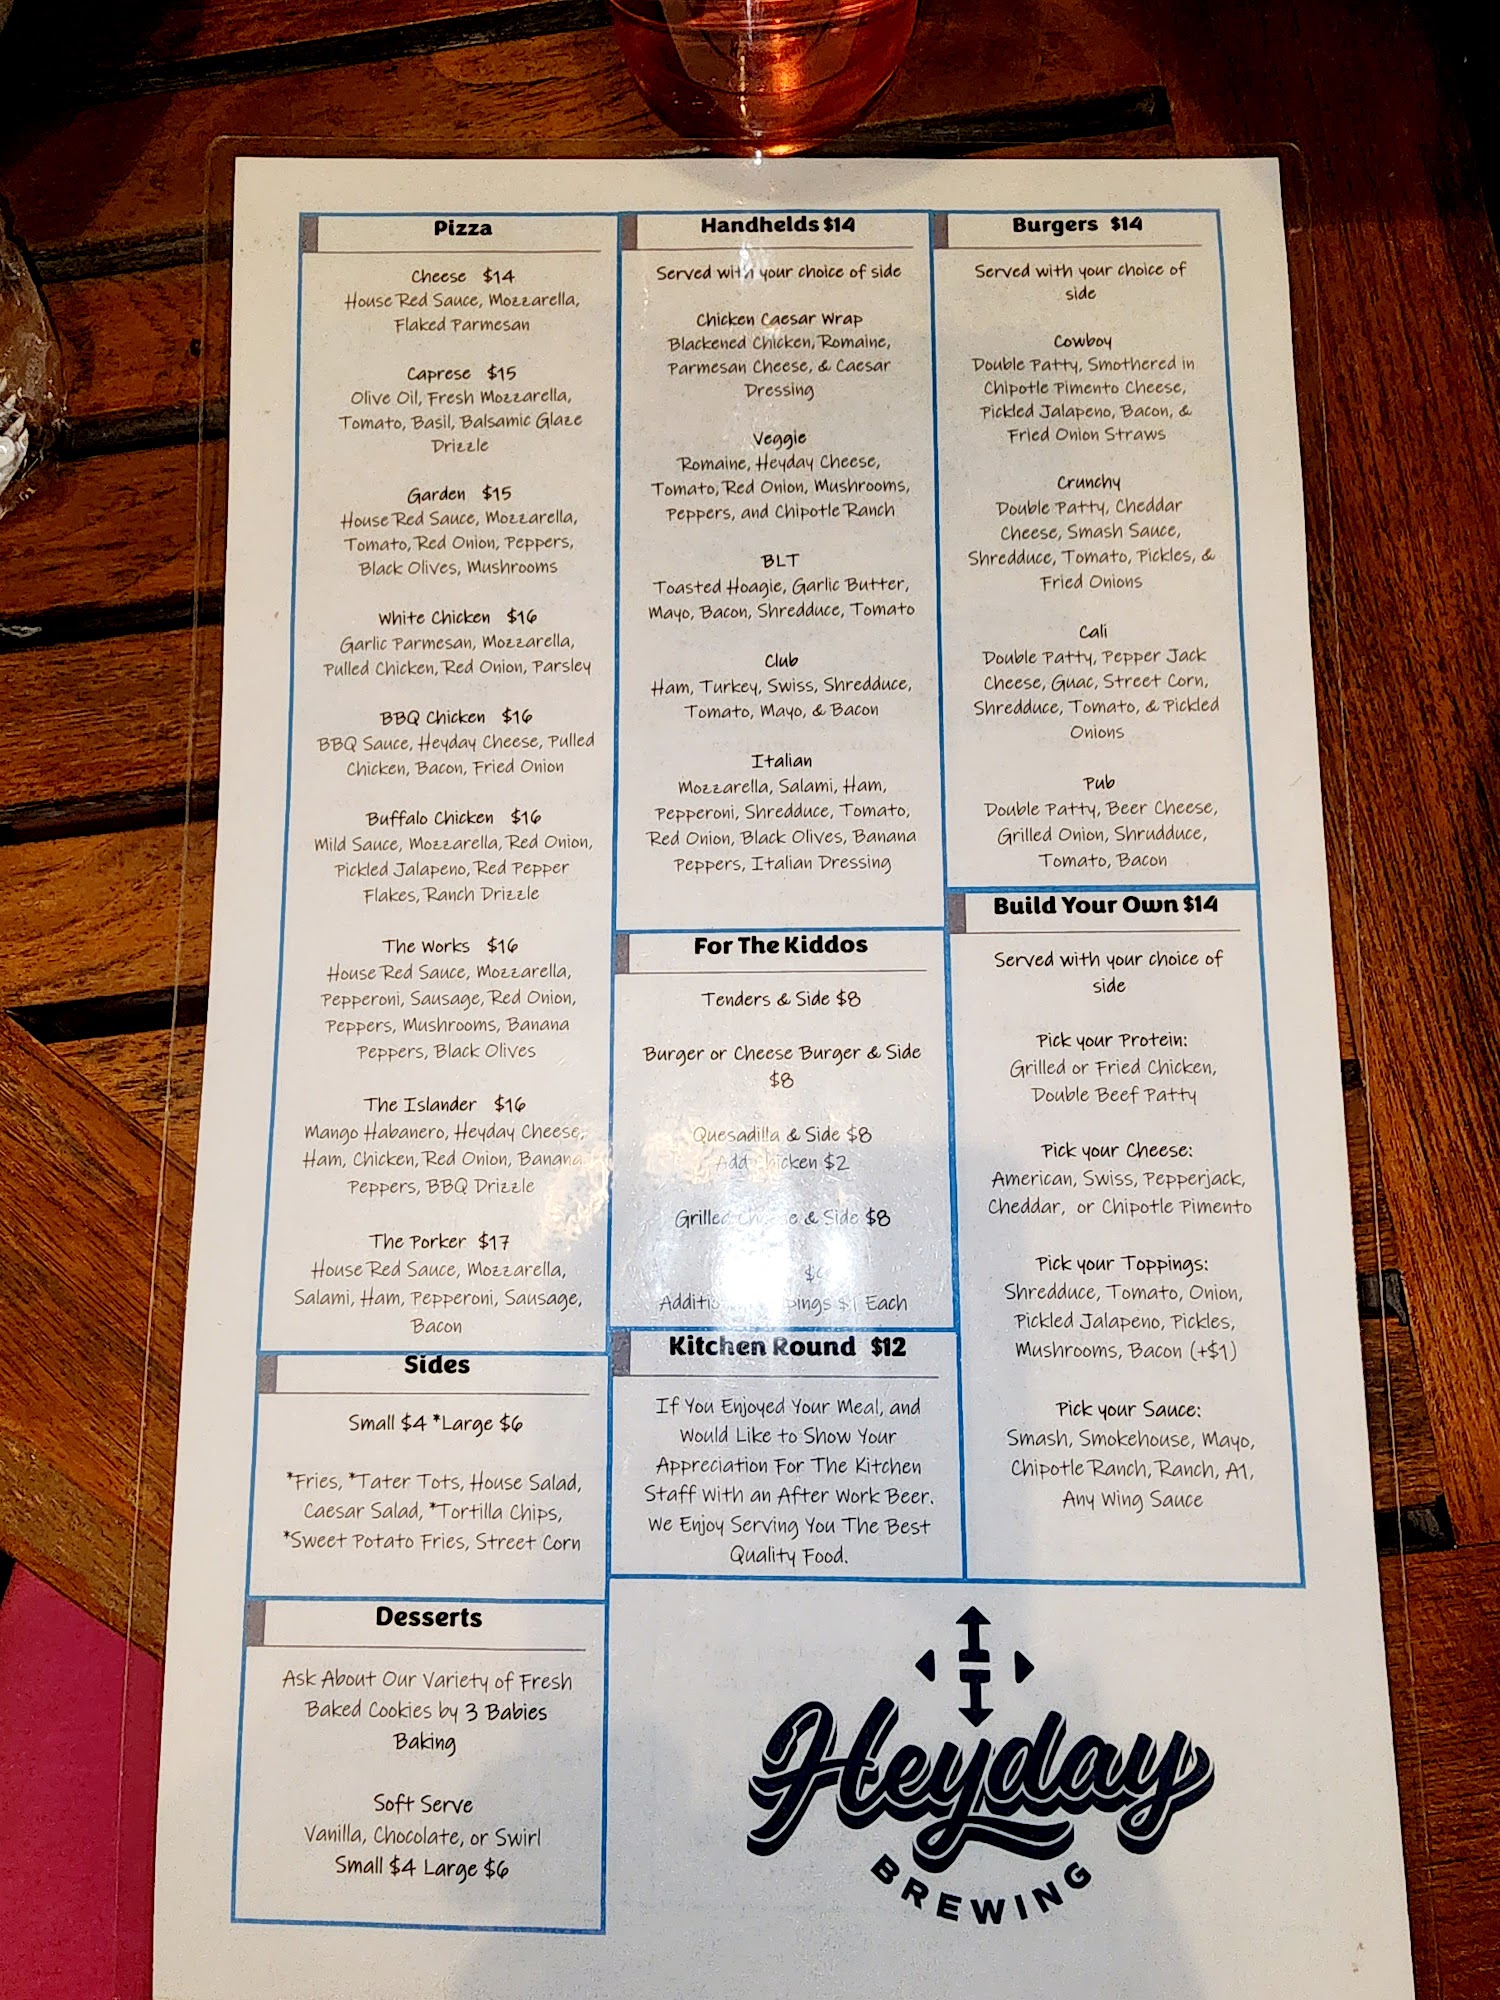 Pizza
Cheese $14
House Red Sauce, Mozzarella,
Flaked Parmesan
Caprese $15
Olive Oil, Fresh Mozzarella,
Tomato, Basil, Balsamic Glaze
Drizzle
Garden $15
House Red Sauce, Mozzarella,
Tomato, Red Onion, Peppers,
Black Olives, Mushrooms
White Chicken $16
Garlic Parmesan, Mozzarella,
Pulled Chicken, Red Onion, Parsley
BBQ Chicken $16
BBQ Sauce, Heyday Cheese, Pulled
Chicken, Bacon, Fried Onion
Buffalo Chicken $16
Mild Sauce, Mozzarella, Red Onion,
Pickled Jalapeno, Red Pepper
Flakes, Ranch Drizzle
The Works $16
House Red Sauce, Mozzarella,
Pepperoni, Sausage, Red Onion,
Peppers, Mushrooms, Banana
Peppers, Black Olives
The Islander $16
Mango Habanero, Heyday Cheese,
Ham, Chicken, Red Onion, Banana
Peppers, BBQ Drizzle
The Porker $17
House Red Sauce, Mozzarella,
Salami, Ham, Pepperoni, Sausage,
Bacon
Sides
Small $4 *Large $6
*Fries, *Tater Tots, House Salad,
Caesar Salad, *Tortilla Chips,
*Sweet Potato Fries, Street Corn
Desserts
Ask About Our Variety of Fresh
Baked Cookies by 3 Babies
Baking
Soft Serve
Vanilla, Chocolate, or Swirl
Small $4 Large $6
Handhelds $14
Served with your choice of side
Chicken Caesar Wrap
Blackened Chicken, Romaine,
Parmesan Cheese, & Caesar
Dressing
Veggie
Romaine, Heyday Cheese,
Tomato, Red Onion, Mushrooms,
Peppers, and Chipotle Ranch
BLT
Toasted Hoagie, Garlic Butter,
Mayo, Bacon, Shredduce, Tomato
Club
Ham, Turkey, Swiss, Shredduce,
Tomato, Mayo, & Bacon
Italian
Mozzarella, Salami, Ham,
Pepperoni, Shredduce, Tomato,
Red Onion, Black Olives, Banana
Peppers, Italian Dressing
For The Kiddos
Tenders & Side $8
Burger or Cheese Burger & Side
$8
Quesadilla & Side $8
Add Chicken $2
Grilled Cheese & Side $8
$1 Each
Kitchen Round $12
If You Enjoyed Your Meal, and
Would Like to Show Your
Appreciation For The Kitchen
Staff With an After Work Beer.
We Enjoy Serving You The Best
Quality Food.
Burgers $14
Served with your choice of
side
Cowboy
Double Patty, Smothered in
Chipotle Pimento Cheese,
Pickled Jalapeno, Bacon, &
Fried Onion Straws
Crunchy
Double Patty, Cheddar
Cheese, Smash Sauce,
Shredduce, Tomato, Pickles, &
Fried Onions
Cali
Double Patty, Pepper Jack
Cheese, Guac, Street Corn,
Shredduce, Tomato, & Pickled
Onions
Pub
Double Patty, Beer Cheese,
Grilled Onion, Shrudduce,
Tomato, Bacon
Build Your Own $14
Served with your choice of
side
Pick your Protein:
Grilled or Fried Chicken,
Double Beef Patty
Pick your Cheese:
American, Swiss, Pepperjack,
Cheddar, or Chipotle Pimento
Pick your Toppings:
Shredduce, Tomato, Onion,
Pickled Jalapeno, Pickles,
Mushrooms, Bacon (+$1)
Pick your Sauce:
Smash, Smokehouse, Mayo,
Chipotle Ranch, Ranch, A1,
Any Wing Sauce
Heyday
BREWING